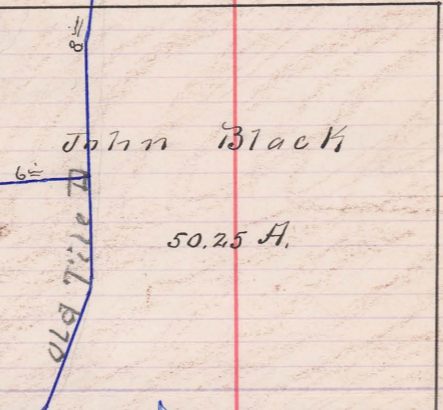 8 in
John Black
6 in
50.25 A.
Old Tile D